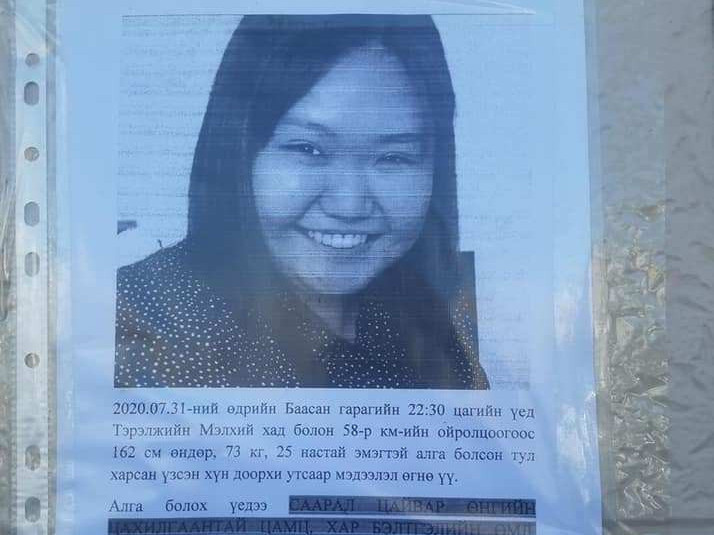 2020.07.31-ний өдрийн Баасан гарагийн 22:30 цагийн үед
Тэрэлжийн Мэлхий хад болон 58-р км-ийн ойролцоогоос
162 см өндөр, 73 кг, 25 настай эмэгтэй алга болсон тул
харсан үзсэн хүн доорхи утсаар мэдээлэл өгнө үү.
Алга болох үедээ СААРАЛ ЦАЙВАР ӨНГИЙН
ЦАХИЛГААНТАЙ ЦАМЦ, ХАР БЭЛТГЭЛИЙН ӨМД